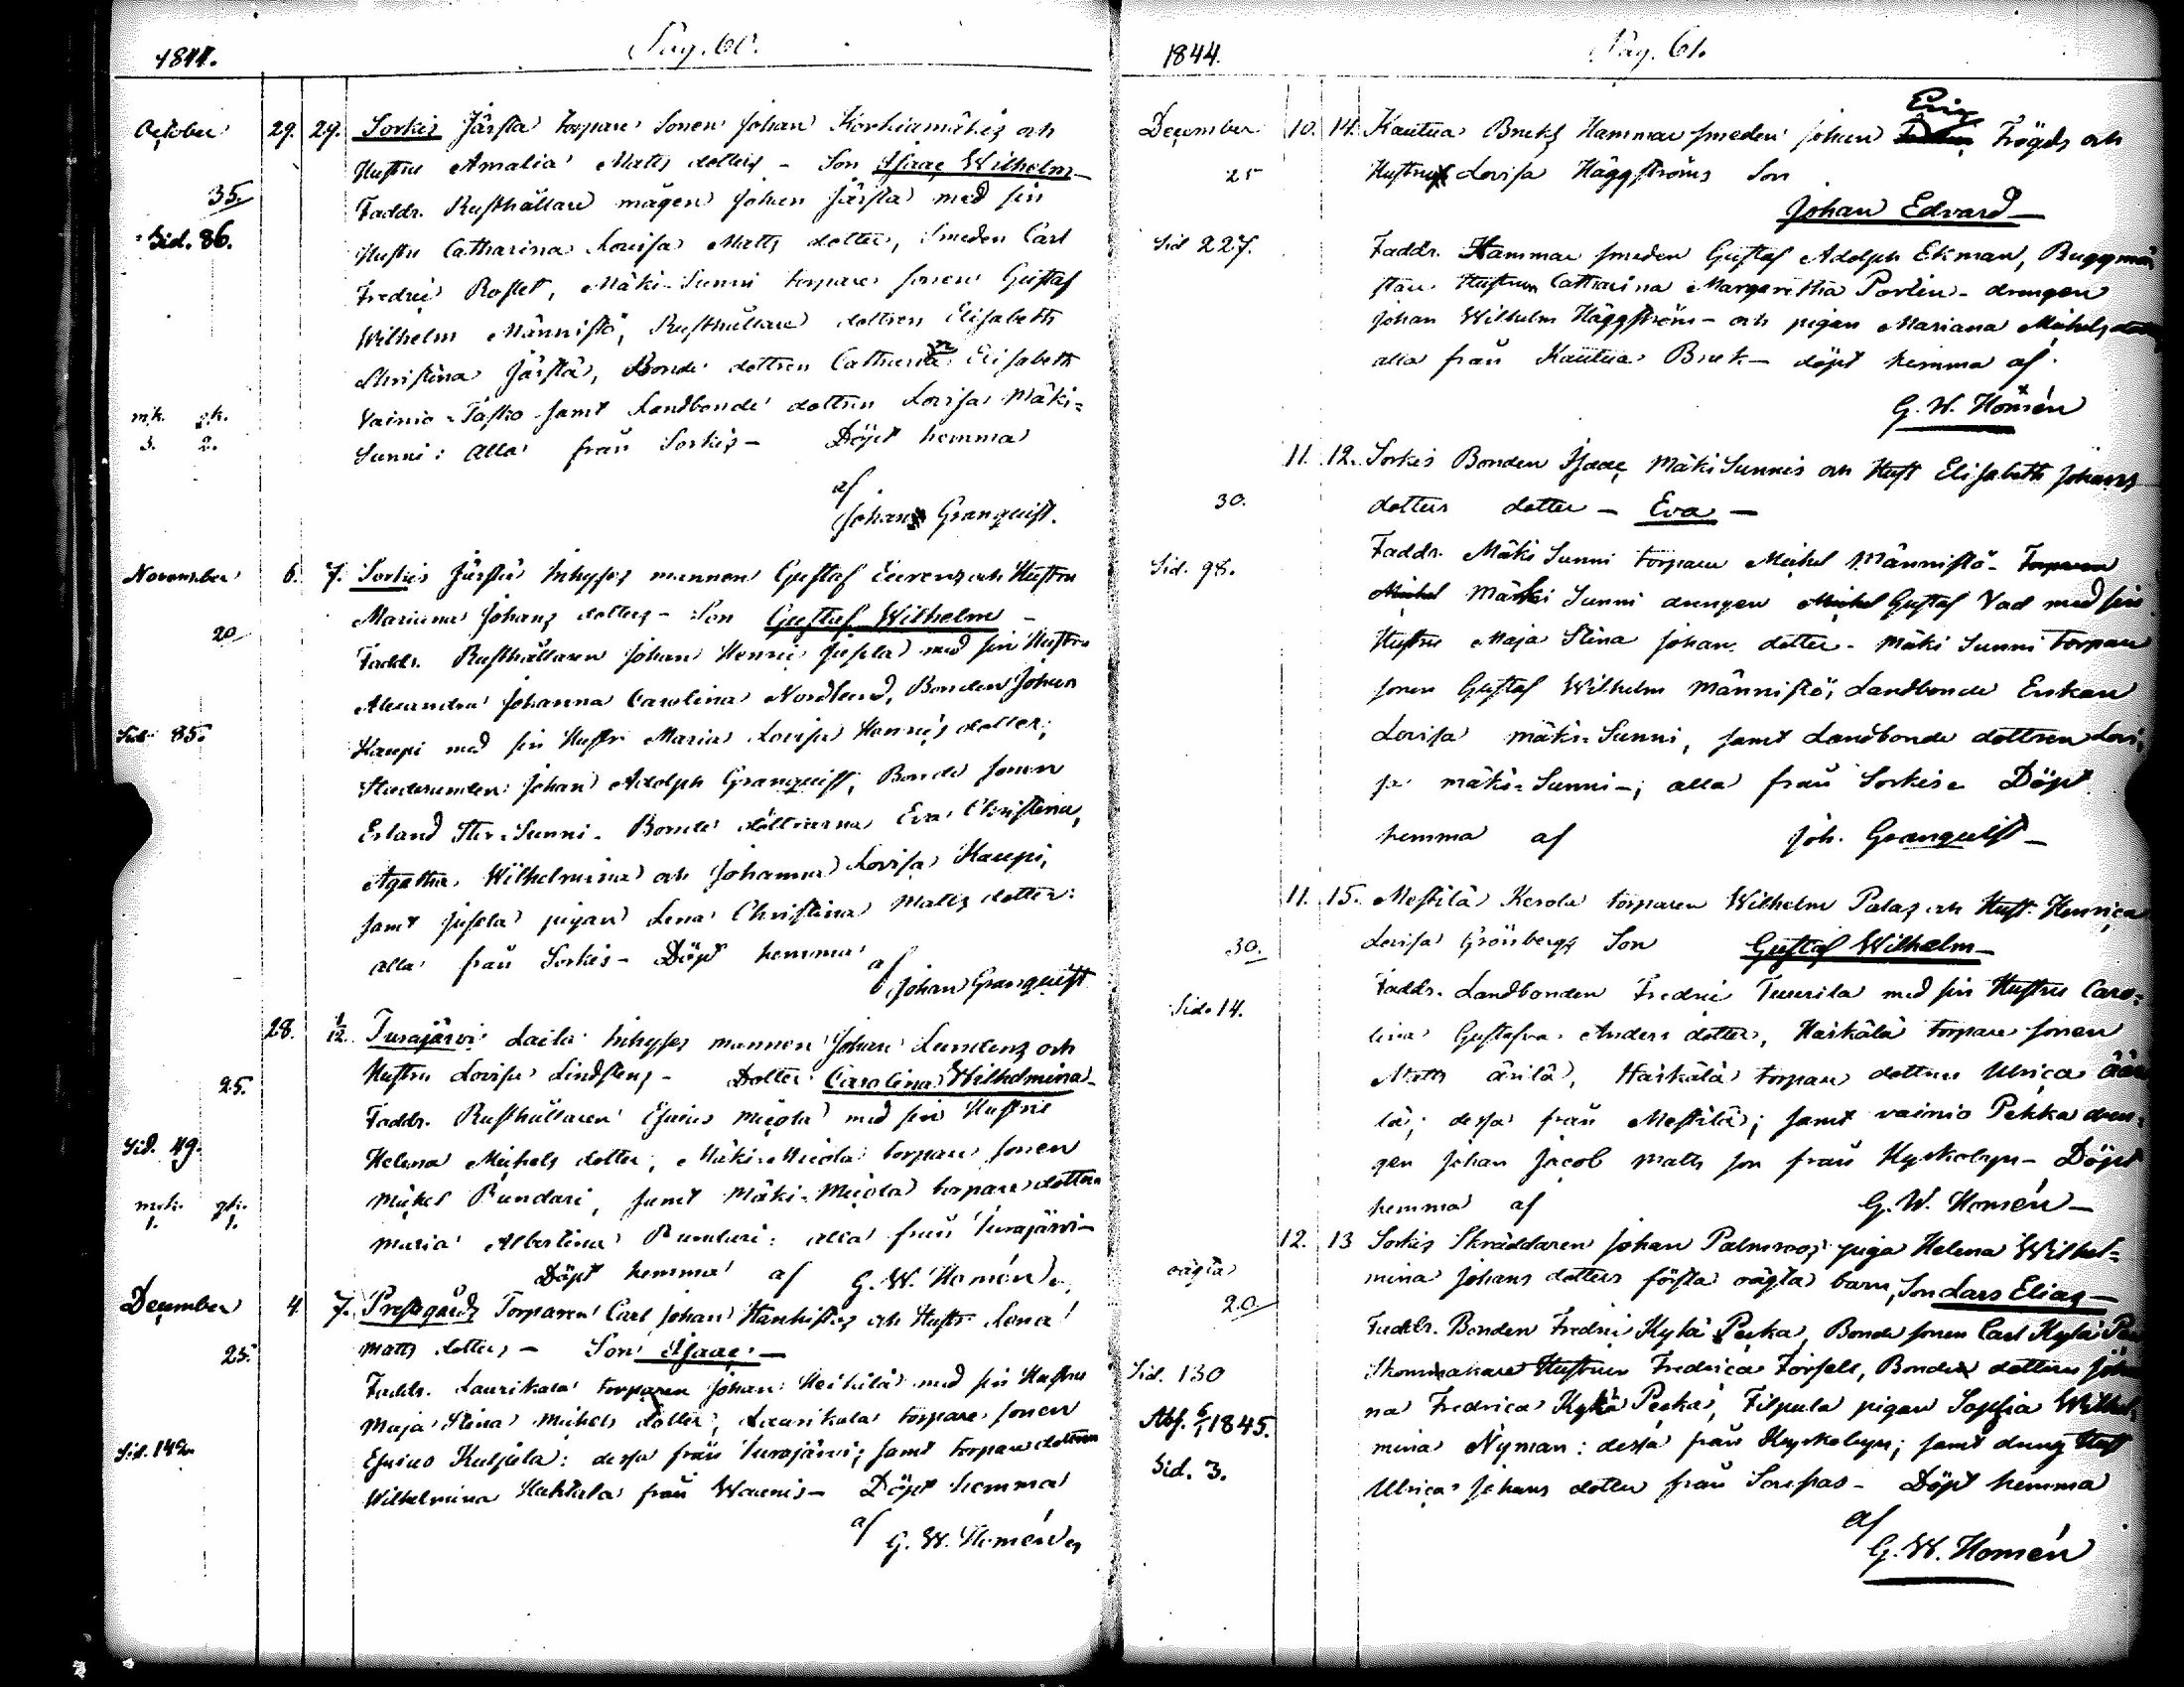 1844. Pag. 60.
October 29. 29. Sorkis Järsta torpare Sonen Johan Korkiamäkis och
Hustru Amalia Matts dotters - Son Isaac Wilhelm -
35. Faddr. Rusthållare mågen Johan Järsta med sin
Sid. 86. Hustru Catharina Lovisa Matts dotter, Smeden Carl
Fredric Roslet, Mäki-Sunni torpare sonen Gustaf
Wilhelm Männistö, Rusthållare dottren Elisabeth
Christina Järstä, Bonde dottren Catharina Elisabeth
Vainio-Tasko samt Landbonde dottren Lovisa Mäki-
mk. gk.
3. 2.
Sunni: alla från Sorkis - Döpt hemma
af
Johan Granquist.
November 6. 7. Sorkis Järsta Inhyses mannen Gustaf och Hustru
Mariana Johans dotters - Son Gustaf Wilhelm -
20 Faddr. Rusthållaren Johan Henric med sin Hustru
Alexandra Johanna Carolina Nordlund, Bonden Johan
Sid. 85. Kaupi med sin Hustr. Maria Lovisa Henrics dotter;
Studeranden Johan Adolph Granquist, Bonde sonen
Erland Sunni - Bonde döttrarna Eva Christina,
Agatha Wilhelmina och Johanna Lovisa Kaupi,
samt pigan Lena Christina Matts dotter:
alla från Sorkis - Döpt hemma
af Johan Granquist
28. 1/12. Turajärvi Laila Inhyses mannen Johan och
Hustru Lovisa Lindstens - Dotter Carolina Wilhelmina -
25. Faddr. Rusthållaren Esaias Micola med sin Hustru
Sid. 49. Helena Michels dotter, Mäki-Micola torpare sonen
Michel Rundari, samt Mäki-Micola torpare dottren
mk. gk.
1. 1.
Maria Albertina Rundari: alla från Turajärvi -
Döpt hemma af G. W. Homén
December 4. 7. Prestgårds Torparen Carl Johan och Hustr. Lena
Matts dotters - Son Isaac -
25. Faddr. Laurikala torparen Johan Heikilä med sin Hustru
Maja Stina Michels dotter; Laurikala torpare sonen
Sid. 142. Esaias Kuljula: dessa från Turajärvi; samt torpare dottren
Wilhelmina från - Döpt hemma
af G. W. Homén
1844. Pag. 61.
December 10. 14. Kauttua Bruks Hammar smeden Johan Eric Frögds och
25 Hustru Lovisa Häggströms Son
Johan Edvard -
Sid 227. Faddr. Hammar smeden Gustaf Adolph Ekman, Byggmä
stare Hustrun Catharina Margaretha Portin - drengen
Johan Wilhelm Häggström - och pigan Mariana Michels
alla från Kauttua Bruk - döpt hemma af
G. W. Homén
11. 12. Sorkis Bonden Isaac Mäki Sunnis och Hust Elisabeth Johans
30. dotters dotter - Eva -
Sid. 98. Faddr. Mäki Sunni torparen Michel Männistö - Torparen
Michel Mäki Sunni drengen Michel Gustaf Vad med sin
Hustru Maja Stina Johans dotter - Mäki Sunni torpare
sonen Gustaf Wilhelm Männistö, Landbonde Enkan
Lovisa Mäki-Sunni, samt Landbonde dottren Lovi-
sa Mäki-Sunni -; alla från Sorkis - Döpt
hemma af Joh. Granquist -
11. 15. Mestilä Kerola torparen Wilhelm Palas och Hust. Henrica
30. Lovisa Grönbergs Son Gustaf Wilhelm -
Sid. 14. Faddr. Landbonden Fredric Tuurila med sin Hustru Caro-
lina Gustafva Anders dotter, Haikälä torpare sonen
Matts ärilä, Haikälä torpare dottren Ulrica
lä; dessa från Mestilä; samt Vainio Pekka dren-
gen Johan Jacob Matts son från Kyrkobyn - Döpt
hemma af G. W. Homén -
12. 13 Sorkis Skräddaren Johan Palmroos piga Helena Wilhel-
oägta mina Johans dotters första oägta barn, Son Lars Elias -
20. Faddr. Bonden Fredric Kylä Pecka, Bonde sonen Carl Kylä
Sid. 130 Skomakare Hustrun Fredrica Forsell, Bonde dottren
Abs. 6/1 1845. na Fredrica Kylä Pecka, Filpula pigan Sophia Wilhel-
mina Nyman: dessa från Kyrkobyn; samt dreng Hust
Sid. 3. Ulrica Johans dotter från - Döpt hemma
af
G. W. Homén